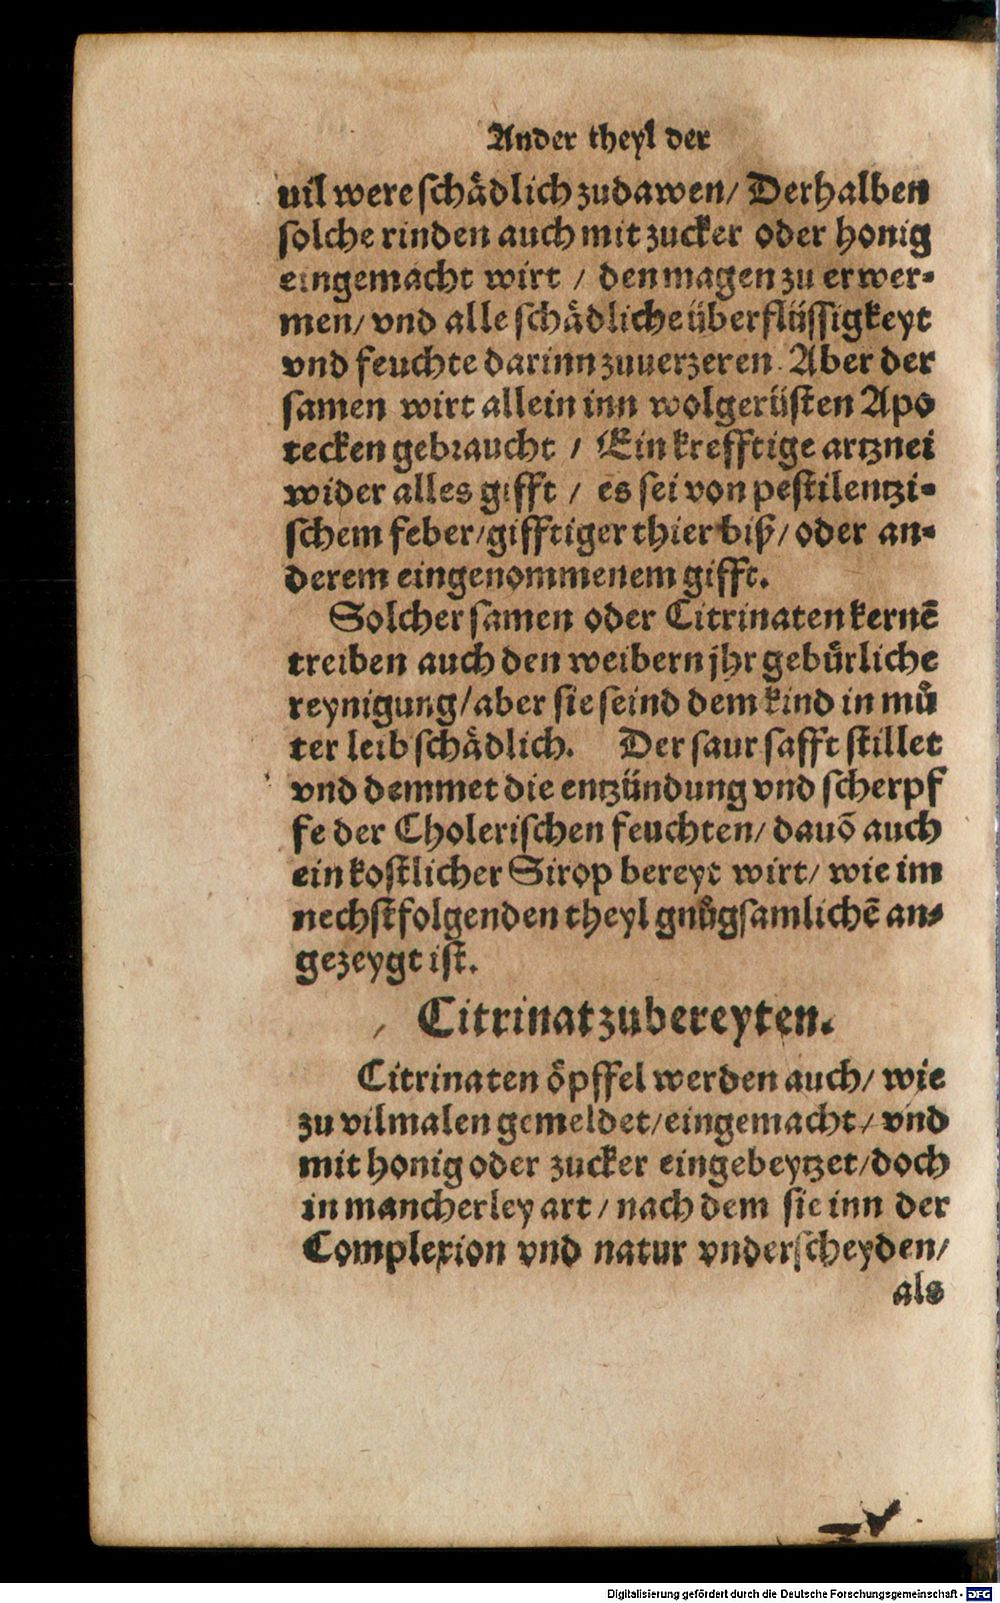 Ander theyl der
uil were schådlich zudawen/ Derhalben
solche rinden auch mit zucker oder honig
eingemacht wirt / den magen zu erwer-
men/ vnd alle schådliche überflüssigkeyt
vnd feuchte darinn zuuerzeren. Aber der
samen wirt allein inn wolgerüsten Apo
tecken gebraucht / Ein krefftige artznei
wider alles gifft / es sei von pestilentzi-
schem feber/gifftiger thier biß/ oder an-
derem eingenommenem gifft.
Solcher samen oder Citrinaten kernē
treiben auch den weibern jhr gebůrliche
reynigung/aber sie seind dem kind in mů
ter leib schådlich. Der saur safft stillet
vnd demmet die entzündung vnd scherpf
fe der Cholerischen feuchten/ dauō auch
ein kostlicher Sirop bereyt wirt/ wie im
nechstfolgenden theyl gnůgsamlichē an-
gezeygt ist.
Citrinat zubereyten.
Citrinaten öpffel werden auch/ wie
zu vilmalen gemeldet/eingemacht/ vnd
mit honig oder zucker eingebeytzet/doch
in mancherley art / nach dem sie inn der
Complexion vnd natur vnderscheyden/
als
Digitalisierung gefördert durch die Deutsche Forschungsgemeinschaft - DFG